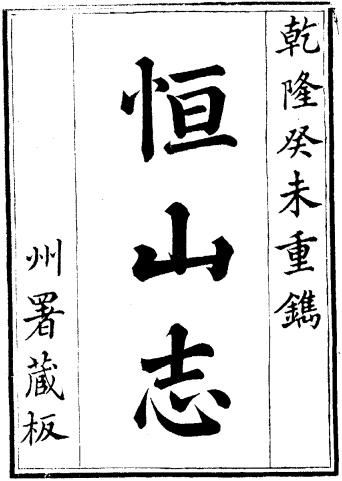 乾隆癸未重鐫
恒山志
州署藏板